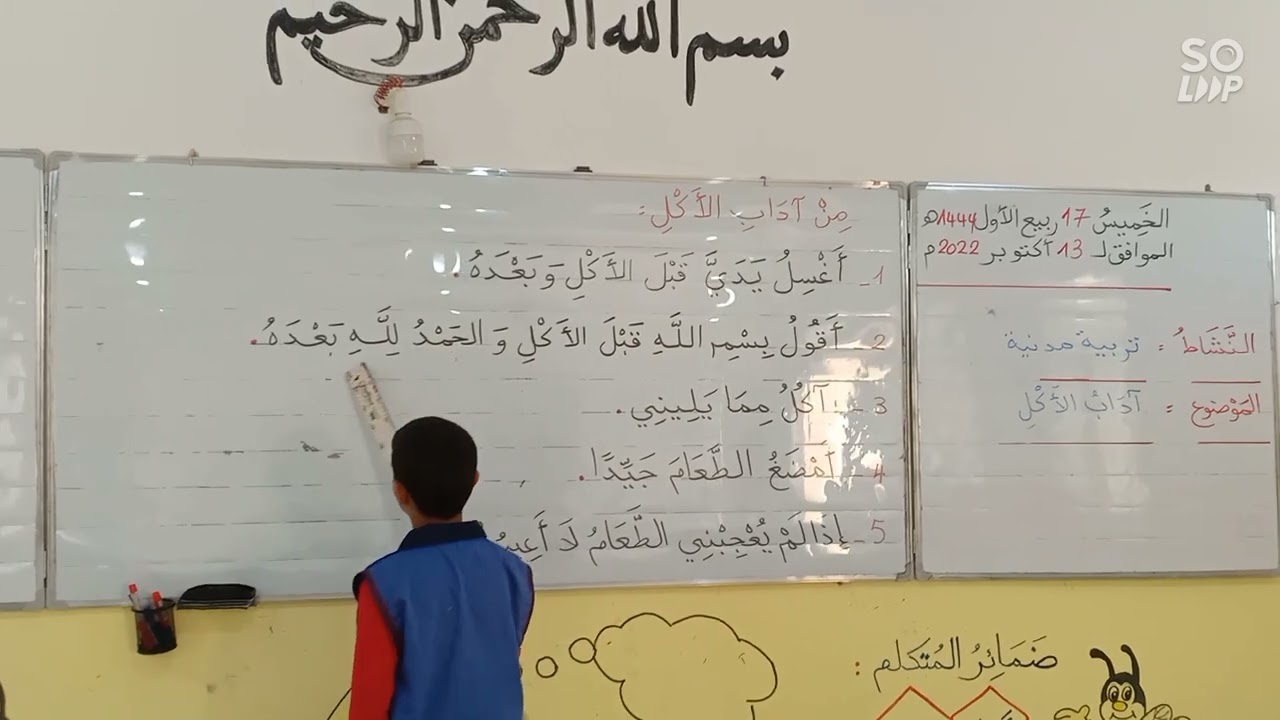 بسم الله الرحمن الرحيم
SO
LOOP
الخَمِيسُ 17 ربيع الأول 1444هـ
الموافق لـ 13 أكتوبر 2022م
النَّشَاطُ : تربية مدنية
المَوْضوع : آدَابُ الأَكْلِ
مِنْ آدَابِ الأَكْلِ :
1 _ أَغْسِلُ يَدَيَّ قَبْلَ الأَكْلِ وَ بَعْدَهُ .
2 _ أَقُولُ بِسْمِ اللَّهِ قَبْلَ الأَكْلِ وَ الحَمْدُ لِلَّهِ بَعْدَهُ .
3 _ آكُلُ مِمَا يَلِينِي .
4 _ أَمْضَغُ الطَّعَامَ جَيِّدًا .
5 _ إِذَا لَمْ يُعْجِبْنِي الطَّعَامُ لَا
ضَمَائِرُ المُتَكلم :